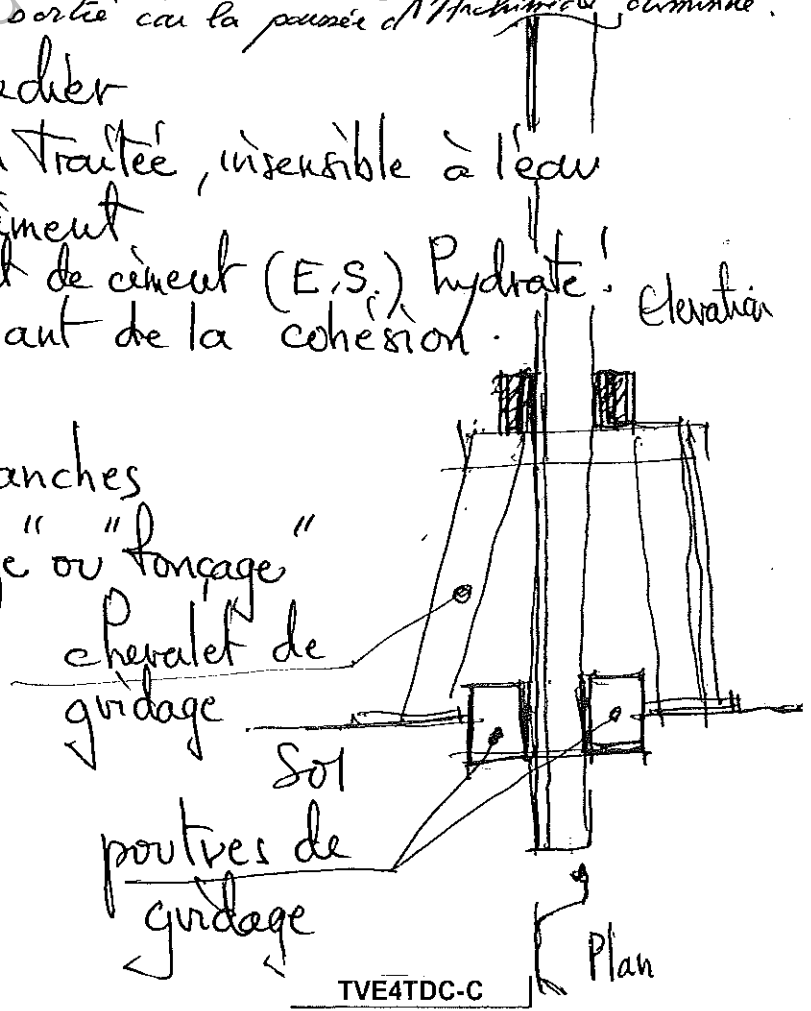 sortie car la poussée d'Archimède diminue.
édier
traitée, insensible à l'eau
ciment
t de ciment (E.S.) hydraté !
Elevation
ant de la cohésion.
anches
e" ou "fonçage"
chevalet de
guidage
Sol
poutres de
guidage
Plan
TVE4TDC-C